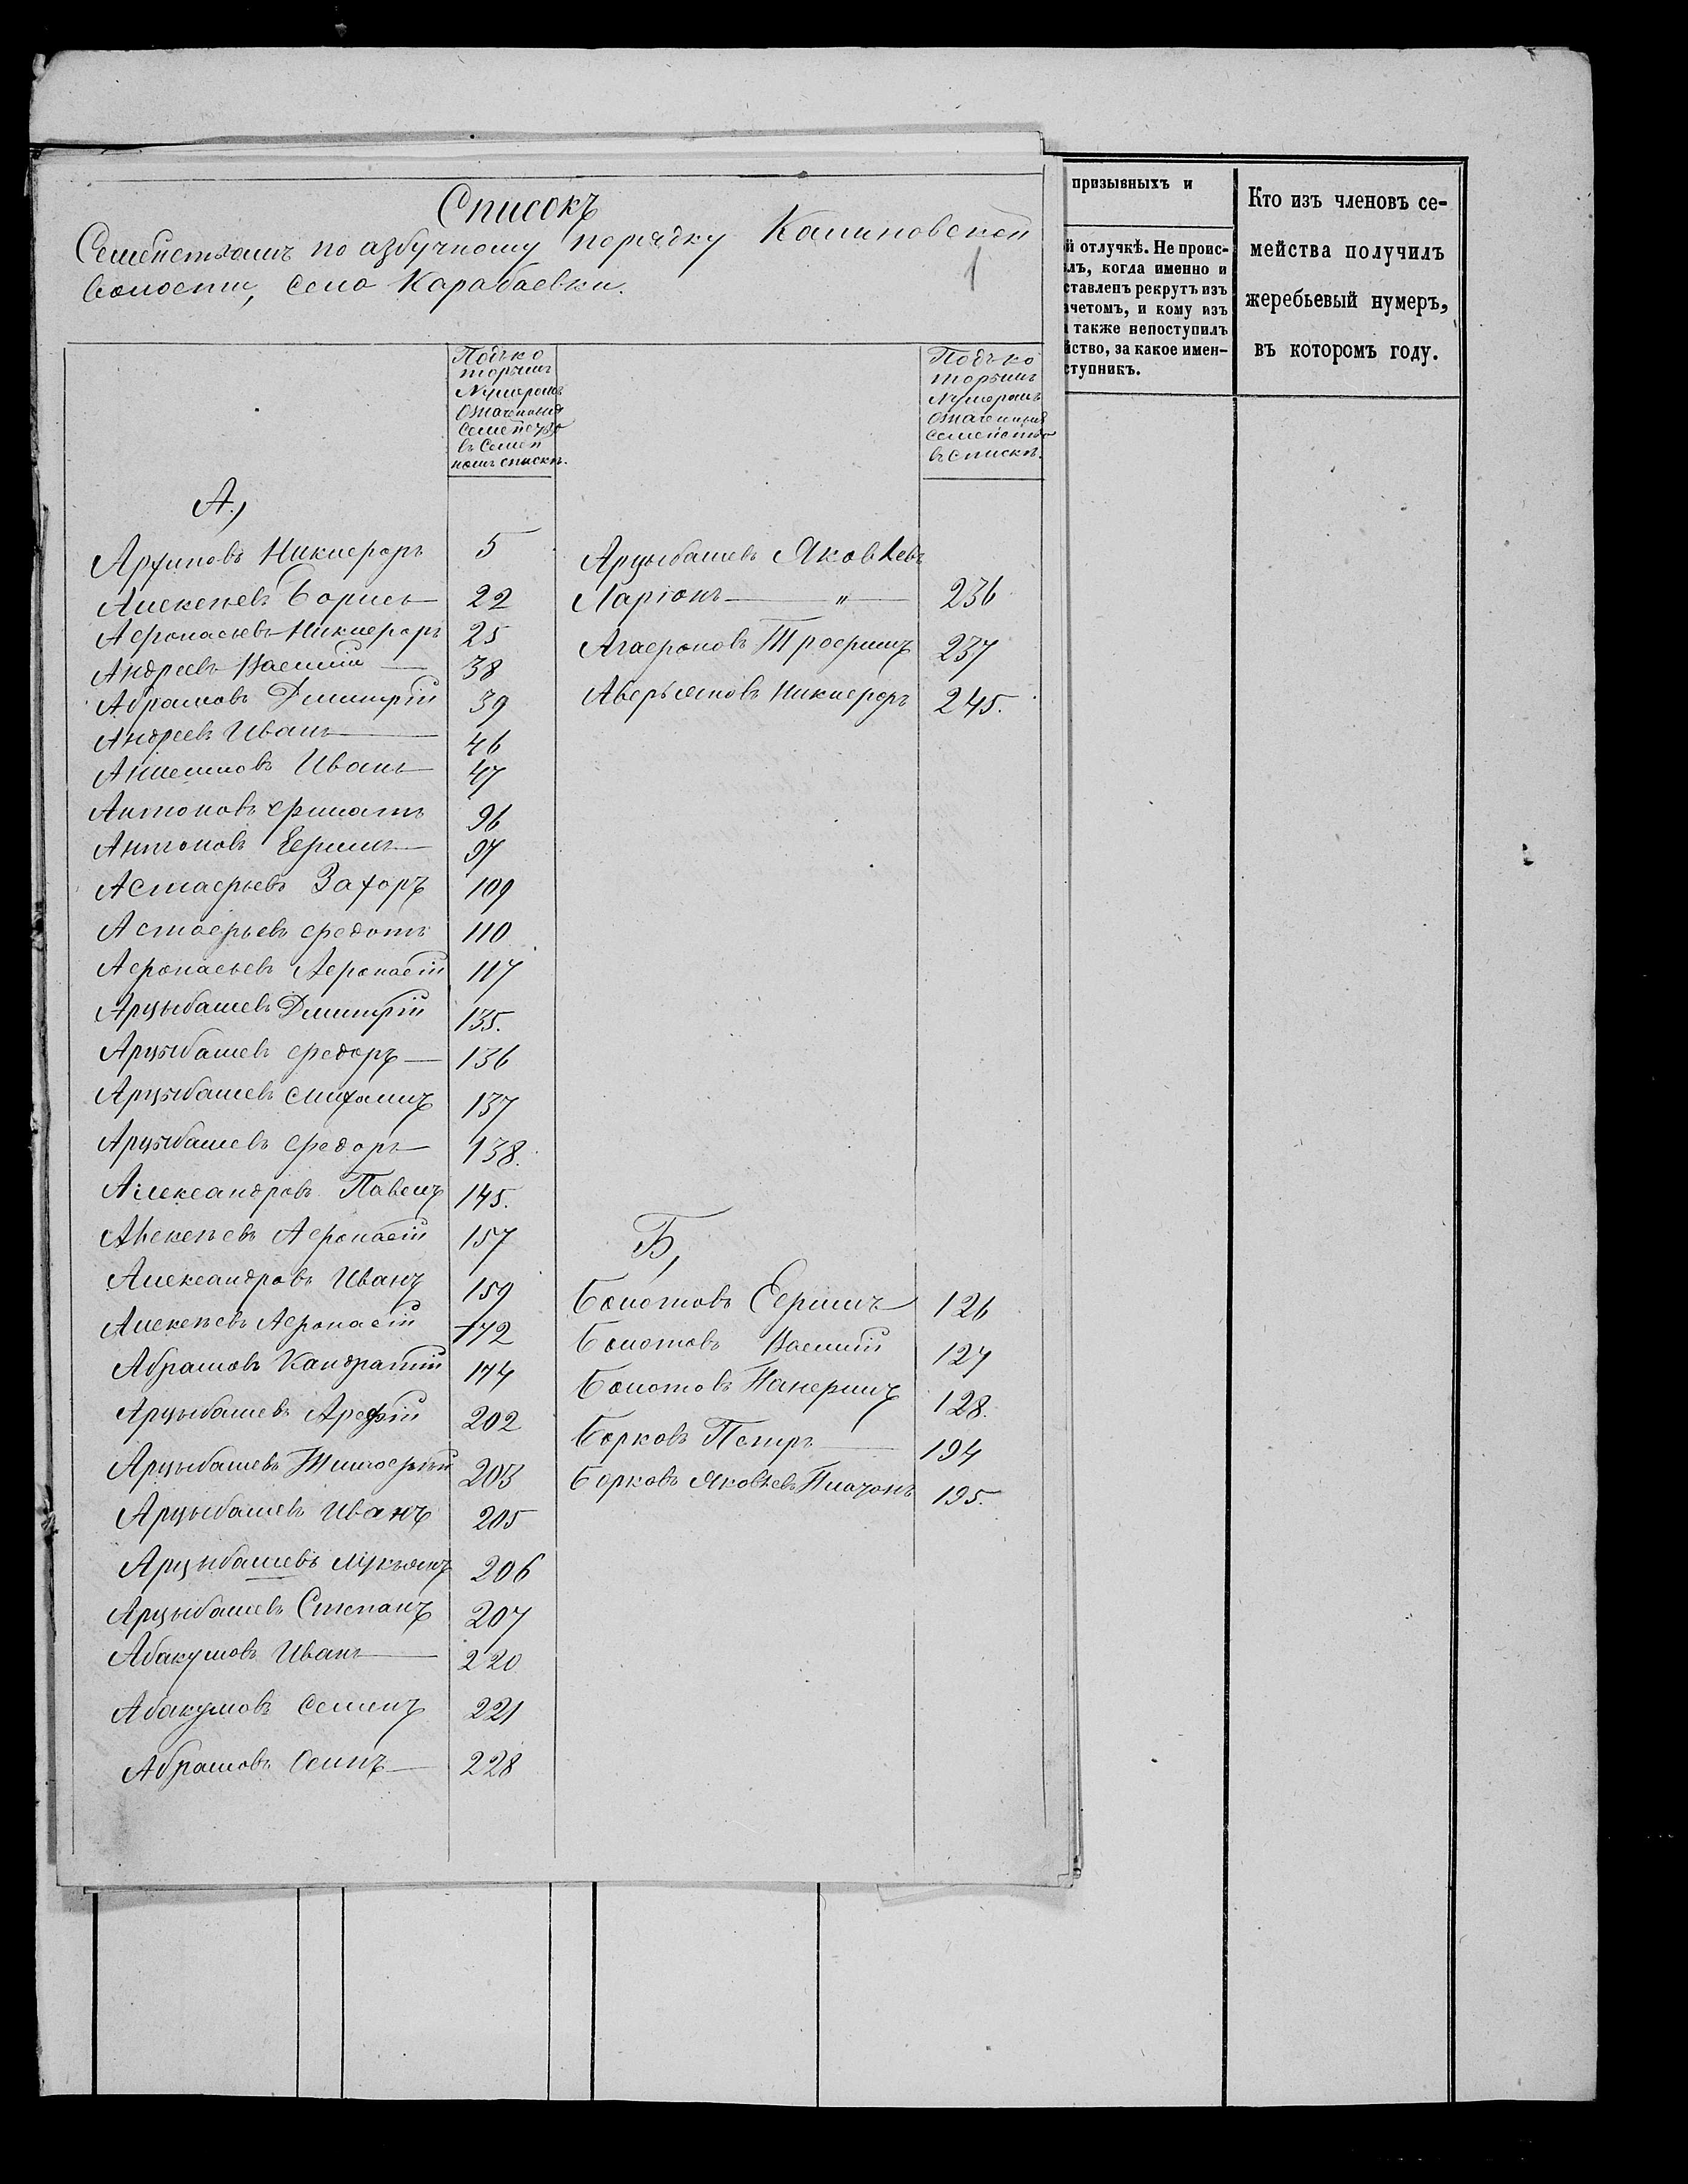 Списокъ
Семействамъ по азбучному порядку Калиновской
волости, села Карабаевки.
1
Подъ ко
торымъ
Нумеромъ
Означенныя
Семейство
въ Семей
номъ спискѣ.
Подъ ко
торымъ
Нумеромъ
Означенныя
Семейство
въ спискѣ.
А.,
Архиповъ Никифоръ 5
Алексѣевъ Борисъ 22
Афонасьевъ Никифоръ 25
Андреевъ Василій 38
Абрамовъ Дмитрій 39
Андреевъ Иванъ 46
Анисимовъ Иванъ 47
Антоновъ Филатъ 96
Антоновъ Ефимъ 97
Астафьевъ Захоръ 109
Астафьевъ Федотъ 110
Афонасьевъ Афонасій 117
Арцыбашевъ Дмитрій 135.
Арцыбашевъ Федоръ 136
Арцыбашевъ Михаилъ 137
Арцыбашевъ Федоръ 138.
Александровъ Павелъ 145.
Алексѣевъ Афонасій 157
Александровъ Иванъ 159
Алексѣевъ Афонасій 172
Абрамовъ Кандратій 174
Арцыбашевъ Арефій 202
Арцыбашевъ Тимофѣй 203
Арцыбашевъ Иванъ 205
Арцыбашевъ Лукьянъ 206
Арцыбашевъ Степанъ 207
Абакумовъ Иванъ 220
Абакумовъ Семенъ 221
Абрамовъ Осипъ 228
Арцыбашевъ Яковлевъ
Ларіонъ " 236
Агафоновъ Трофимъ 237
Аверьяновъ Никифоръ 245.
Б,
Болотовъ Ефимъ 126
Болотовъ Василій 127
Болотовъ Панфилъ 128.
Борковъ Петръ 194
Борковъ Яковлевъ Платонъ 195.
призывныхъ и
й отлучкѣ. Не проис-
лъ, когда именно и
ставленъ рекрутъ изъ
ачетомъ, и кому изъ
а также непоступилъ
йство, за какое имен-
ступникъ.
Кто изъ членовъ се-
мейства получилъ
жеребьевый нумеръ,
въ которомъ году.